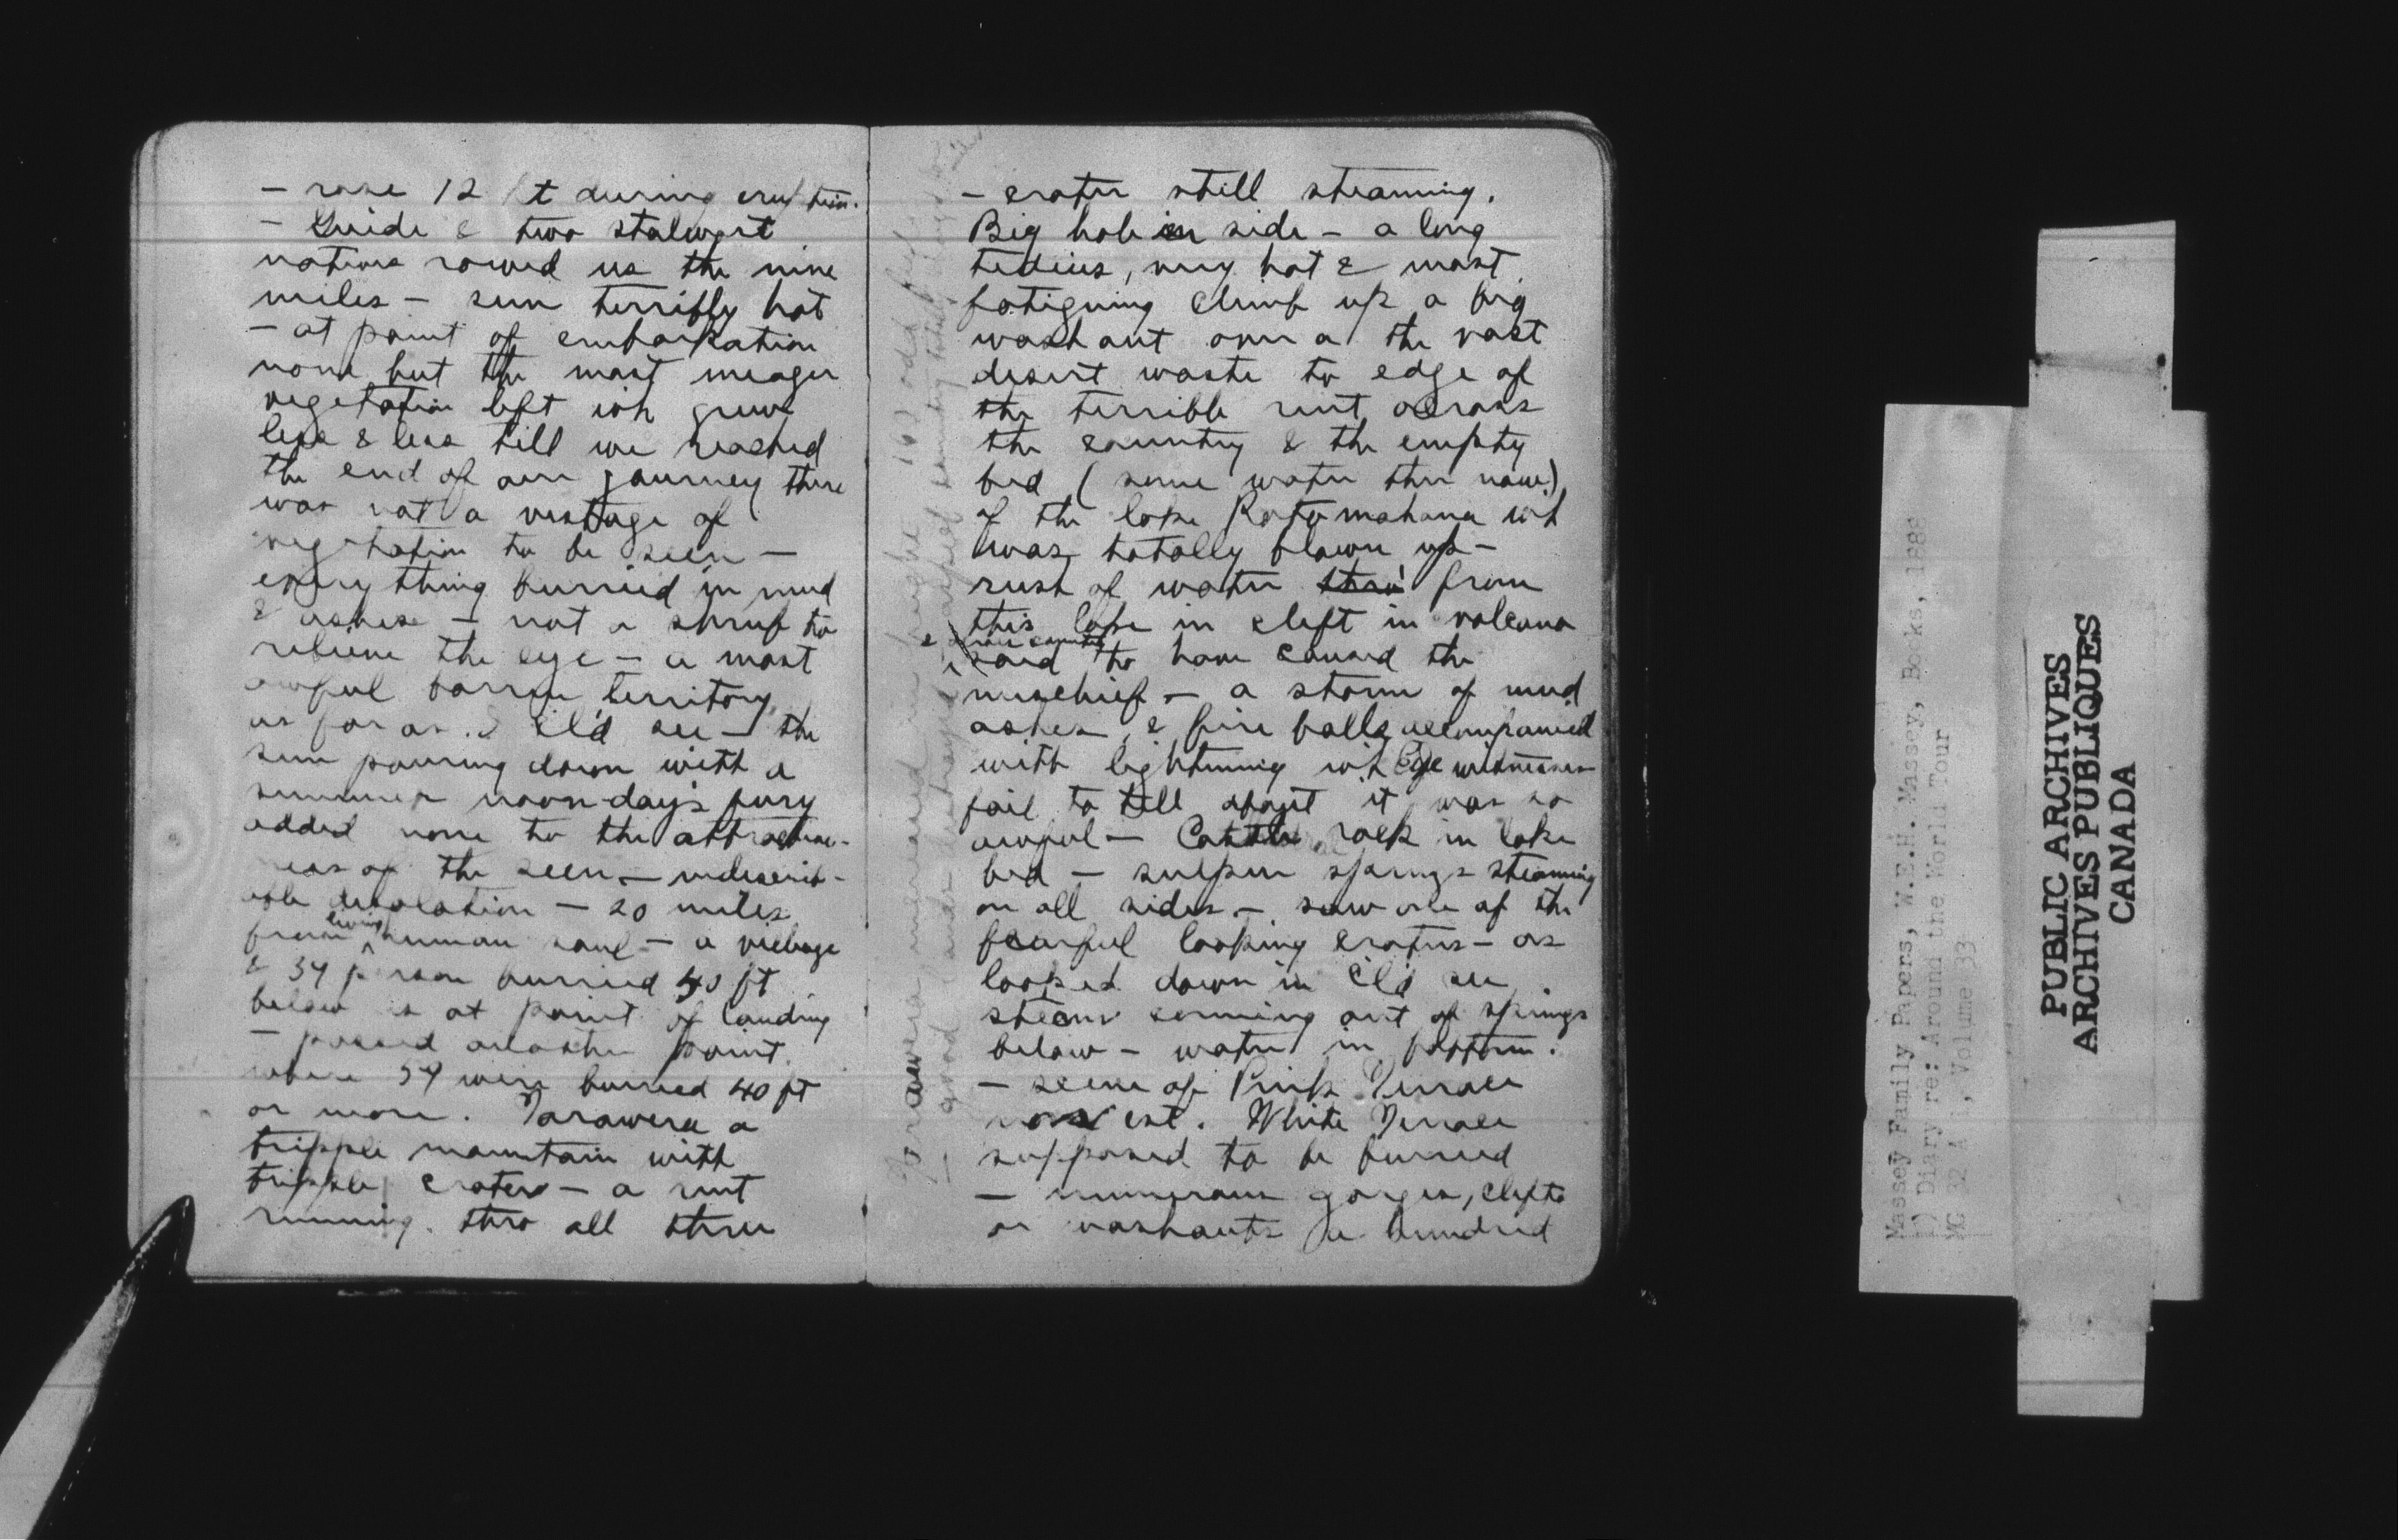 - rose 12 ft during eruption.
- Guide & two stalwart
natives rowed us the nine
miles - sun terribly hot
- at point of embarkation
none but the most meager
vegetation left wh grew
less & less till we reached
the end of our journey there
was not a vestage of
vegetation to be seen -
every thing burried in mud
& ashes - not a shrub to
relieve the eye - a most
awful barren territory
as far as I c'l'd see - the
sun pouring down with a
summer noon-day's fury
added none to the attractive-
ness of the seen - indescrib-
able desolation - 20 miles
from living human soul - a village
& 39 person burried 40 ft
below is at point of landing
- passed another point
where 39 were burried 40 ft
or more. Tarawera a
tripple mountain with
tripple crater - a rent
running thro all three
- crater still steaming.
Big hole in side - a long
tedius, very hot & most
fatiguing climb up a big
washout over a the vast
desert waste to edge of
the terrible rent across
the country & the empty
bed (some water ther now)
of the lake Rotomahana wh
was totally blown up -
rush of water thro' from
this lake in cleft in volcano
&
said to have caused the
mischief - a storm of mud
ashes & fire balls accompanied
with lightning wh Eye witnesses
fail to tell about it was so
awful - rock in lake
bed - sulpur springs steaming
on all sides - saw one of the
fearful looking craters - as
looked down in c'l'd see
steam comming out of springs
below - water in bottom.
- scene of Pink Terrace
now ext. White Terrace
supposed to be burried
- numerous gorges, clefts
or washouts a hundred
Tarawera increased in height 160 odd feet
Massey Family Papers, W.E.H. Massey, Books, 1888
1) Diary re: Around the World Tour
MG 32 A 1, Volume 33
PUBLIC ARCHIVES
ARCHIVES PUBLIQUES
CANADA